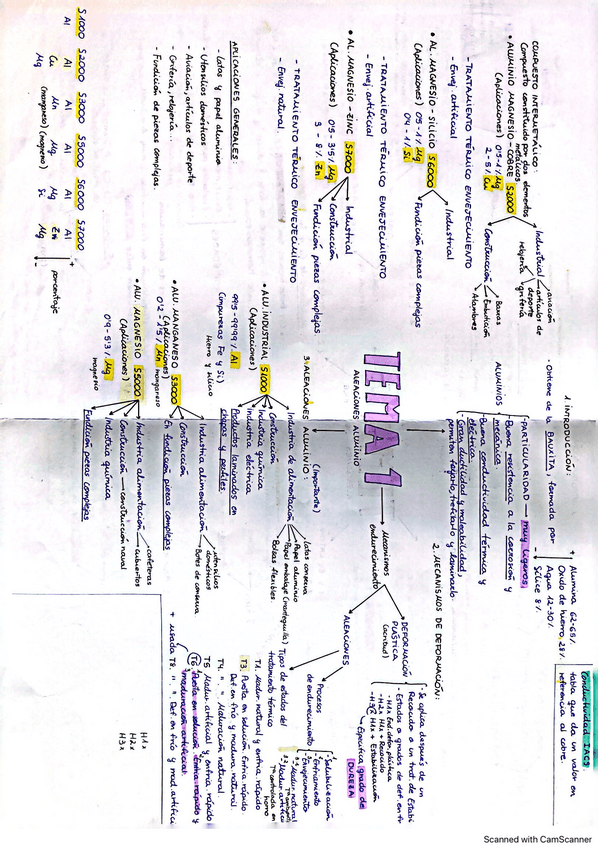 TEMA 1
ALEACIONES ALUMINIO
1. INTRODUCCIÓN:
- Obtiene de la BAUXITA, formada por
+
-
Alumina 62-65%
Oxido de hierro 28%
Agua 12-30%
Sílice 8%
Conductividad IACS
tabla que da un valor en
referencia al cobre.
ALUMINIOS
- PARTICULARIDAD → muy ligeros
Buena resistencia a la corrosión y
mecánica.
Buena conductividad térmica y
eléctrica.
- Gran ductilidad y maleabilidad
permiten forjarlo, trefilarlo y laminarlo
2. MECANISMOS DE DEFORMACIÓN:
Mecanismos
endurecimiento
DEFORMACIÓN
PLÁSTICA
(acritud)
- Se aplica después de un
Recocido o un trat. de Estabi
- Estados o grados de def. en fr
- H1x
- H2x H1x + Recocido
- H3x H1x + Estabilización
Especifica grado de
DUREZA
ALEACIONES
Procesos
de endurecimiento
- Solubilización
- Enfriamiento
- Envejecimiento
Madur. natural
Madur. artifici
Tª controlada en
horno
Tipos de estados del
tratamiento térmico
T1. Madur. natural y entria rápido
T3. Puesta en solución. Entria rápido
Def. en frío y madura natural.
T4. " . " . Maduración natural
T5 Madur. artificial y entria rápido
T6. Puesta en solución. Entria rápido y
maduración artificial.
+ usada T8. " . " . Def. en frío y mad. artifici
H1x
H2x
H3x
3. ALEACIONES ALUMINIO: (Importante)
• ALU INDUSTRIAL S1000
(Aplicaciones)
99'5-99'99% Al
(impurezas Fe y Si)
Hierro y silicio
Industria de alimentación
latas conserva
Papel aluminio
Papel embalaje (mantequilla)
Bolsas flexibles.
Construcción
Industria química
Industria eléctrica
Productos laminados en
chapas y perfiles.
• ALU. MANGANESO S3000
(Aplicaciones)
0'2-1'5% Mn manganeso
Industria alimentación
utensilios
domésticos
Botes de conserva
Construcción
En fundición piezas complejas
• ALU. MAGNESIO S5000
(Aplicaciones)
0'9-5'13% Mg
magnesio
Industria alimentación
cafeteras
cubiertos
Construcción → construcción naval
Industria química
Fundición piezas complejas
COMPUESTO INTERMETÁLICO:
Compuesto constituido por dos elementos
metálicos
• ALUMINIO MAGNESIO-COBRE S2000
(Aplicaciones) 0'5-1% Mg
2-5% Cu
Industrial
aviación
artículos de
deporte
grifería
relojería
Construcción
Barras
Extrusión
Alambres
- TRATAMIENTO TÉRMICO ENVEJECIMIENTO
- Envej. artificial
• AL. MAGNESIO-SILICIO S6000
(Aplicaciones) 0'5-1% Mg
0'4-1% Si
Industrial
Fundición piezas complejas
- TRATAMIENTO TÉRMICO ENVEJECIMIENTO
- Envej. artificial
• AL. MAGNESIO-ZINC S7000
(Aplicaciones) 0'5-3'5% Mg
3-8% Zn
Industrial
Construcción
Fundición piezas complejas
- TRATAMIENTO TÉRMICO ENVEJECIMIENTO
- Envej. natural.
APLICACIONES GENERALES:
- Latas y papel aluminio
- Utensilios domésticos
- Aviación, artículos de deporte
- Grifería, relojería...
- Fundición de piezas complejas
S1000 S2000 S3000 S5000 S6000 S7000
Al Al Al Al Al Al
Cu Mn Mg Mg Zn
Mg (manganeso) (magnesio) Si Mg
+
-
porcentaje
Scanned with CamScanner